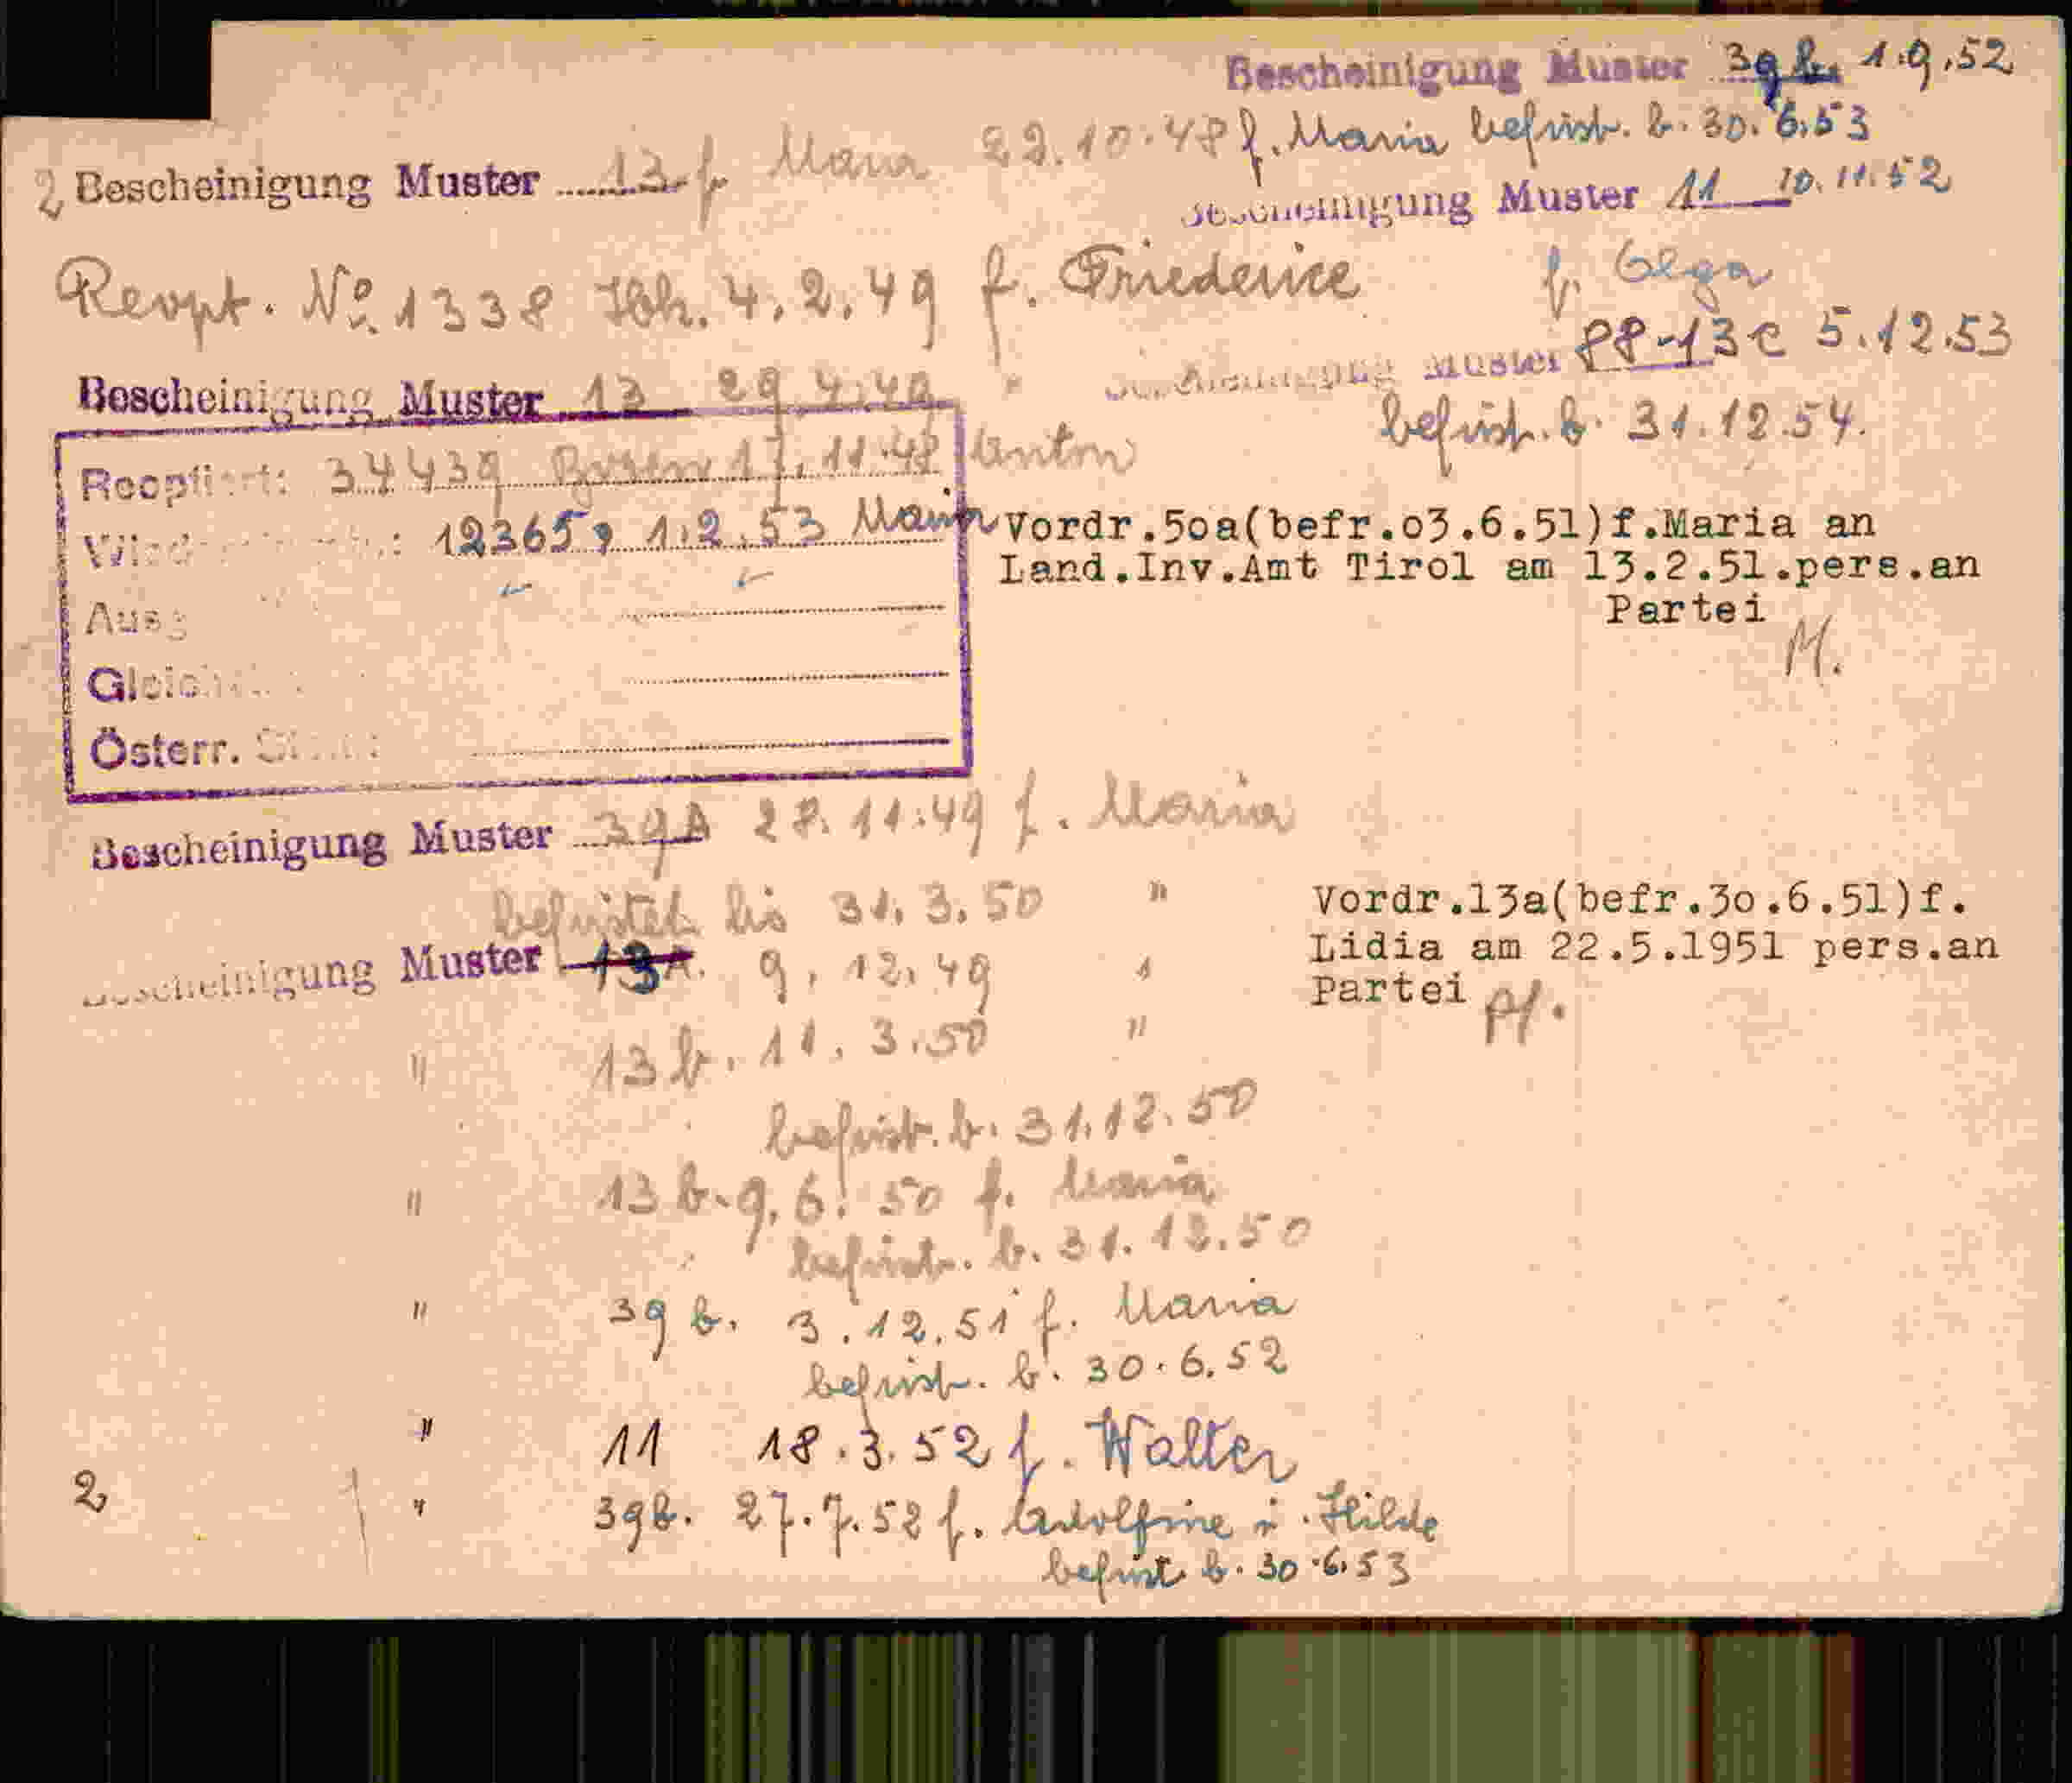 Bescheinigung Muster 39 b. 1.9.52
f. Maria befrist. b. 30.6.53
2 Bescheinigung Muster 13 f. Maria 22.10.48
Bescheinigung Muster 11 10.11.52
f. Olga
Reopt. No. 1338 4.2.49 f. Friederice
Bescheinigung Muster 88-13c 5.12.53
befrist. b. 31.12.54.
Bescheinigung Muster 13 29.4.49 "
Reoptiert: 34439 Bozen 17.11.48 Anton
12365, 1.2.53 Maria
Ausg
Gleich
Österr.
Vordr.5oa(befr.o3.6.51)f.Maria an
Land.Inv.Amt Tirol am 13.2.51.pers.an
Partei
M.
Bescheinigung Muster 39A 28.11.49 f. Maria
befristet bis 31.3.50 "
Bescheinigung Muster 13A. 9.12.49 "
" 13 b. 11.3.50 "
befrist. b. 31.12.50
" 13 b. 9.6.50 f. Maria
befrist. b. 31.12.50
" 39 b. 3.12.51 f. Maria
befrist. b. 30.6.52
" 11 18.3.52 f. Walter
2 " 39b. 27.7.52 f. Adolfine Hilde
befrist b. 30.6.53
Vordr.13a(befr.3o.6.51)f.
Lidia am 22.5.1951 pers.an
Partei